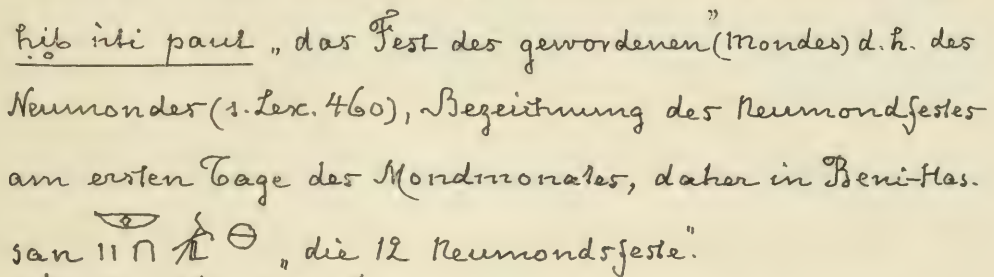 ḥib nti paut „das Fest des gewordenen (Mondes)” d. h. des
Neumondes (s. Lex. 460), Bezeichnung des Neumondfestes
am ersten Tage des Mondmonates, daher in Beni-Has-
san 𓎱 II∩ 𓇐 ⊖ „die 12 Neumondsfeste”.